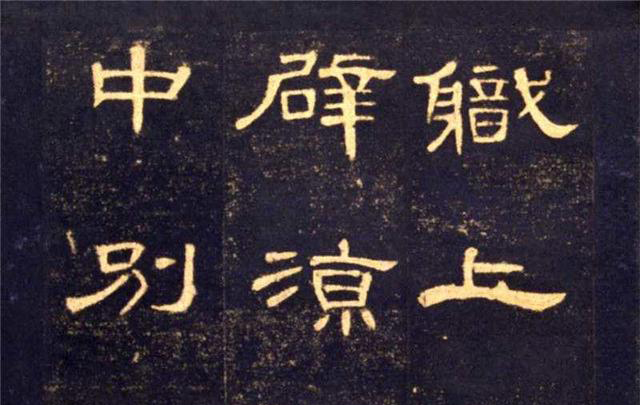 職上
辟涼
中別